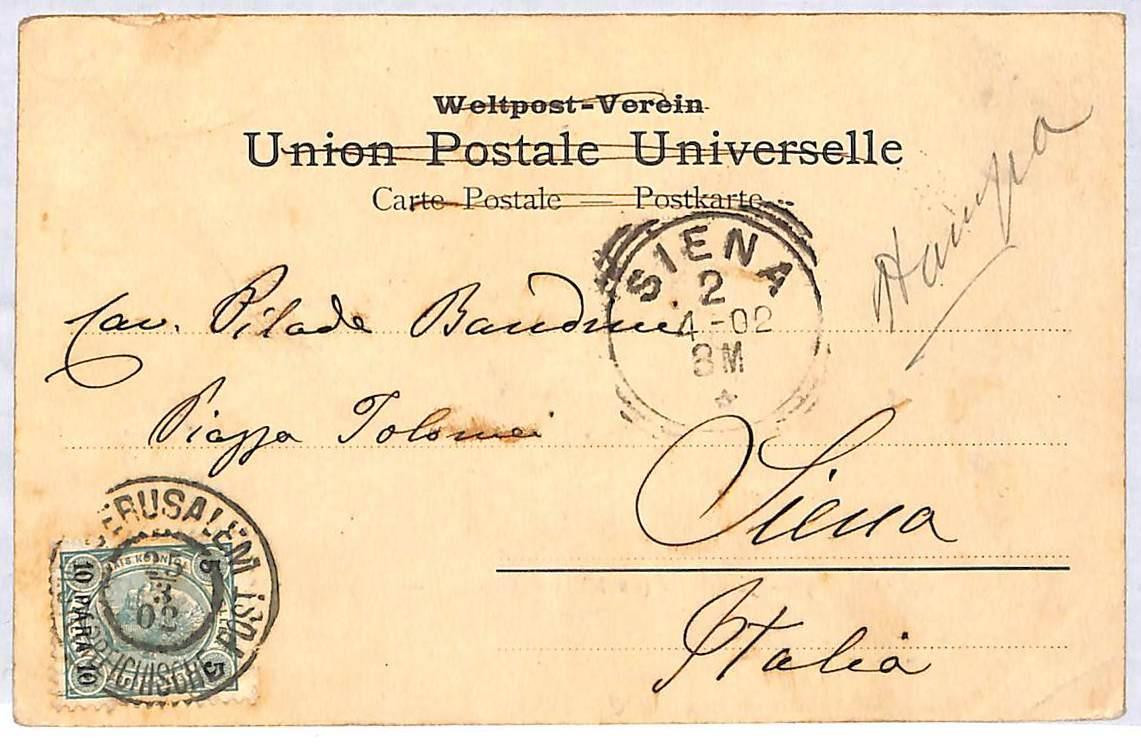 Weltpost-Verein
Union Postale Universelle
Carte Postale = Postkarte
Stampa
SIENA
2
4-02
8M
Cav. Pilade Bandini
Piazza Tolomei
Siena
Italia
JERUSALEM
3
02
5
5
10 PARA 10